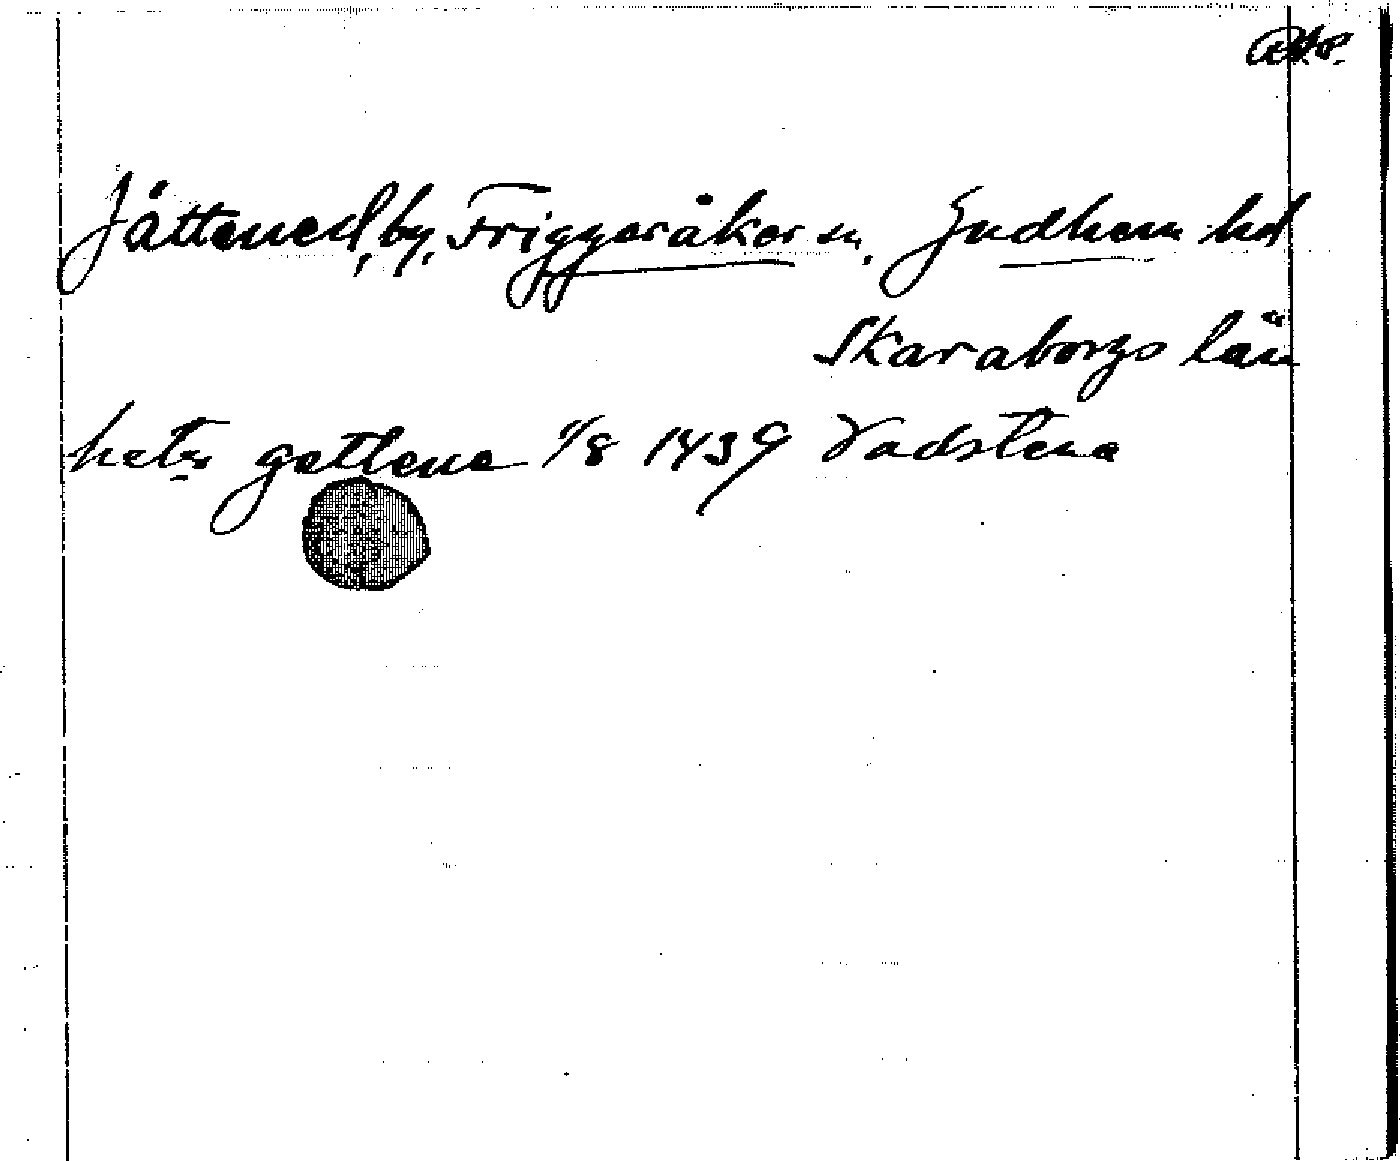 Jättened, by, Friggeråker sn, Gudhem hd
Skaraborgs län
heter gettene 1/8 1439 Vadstena